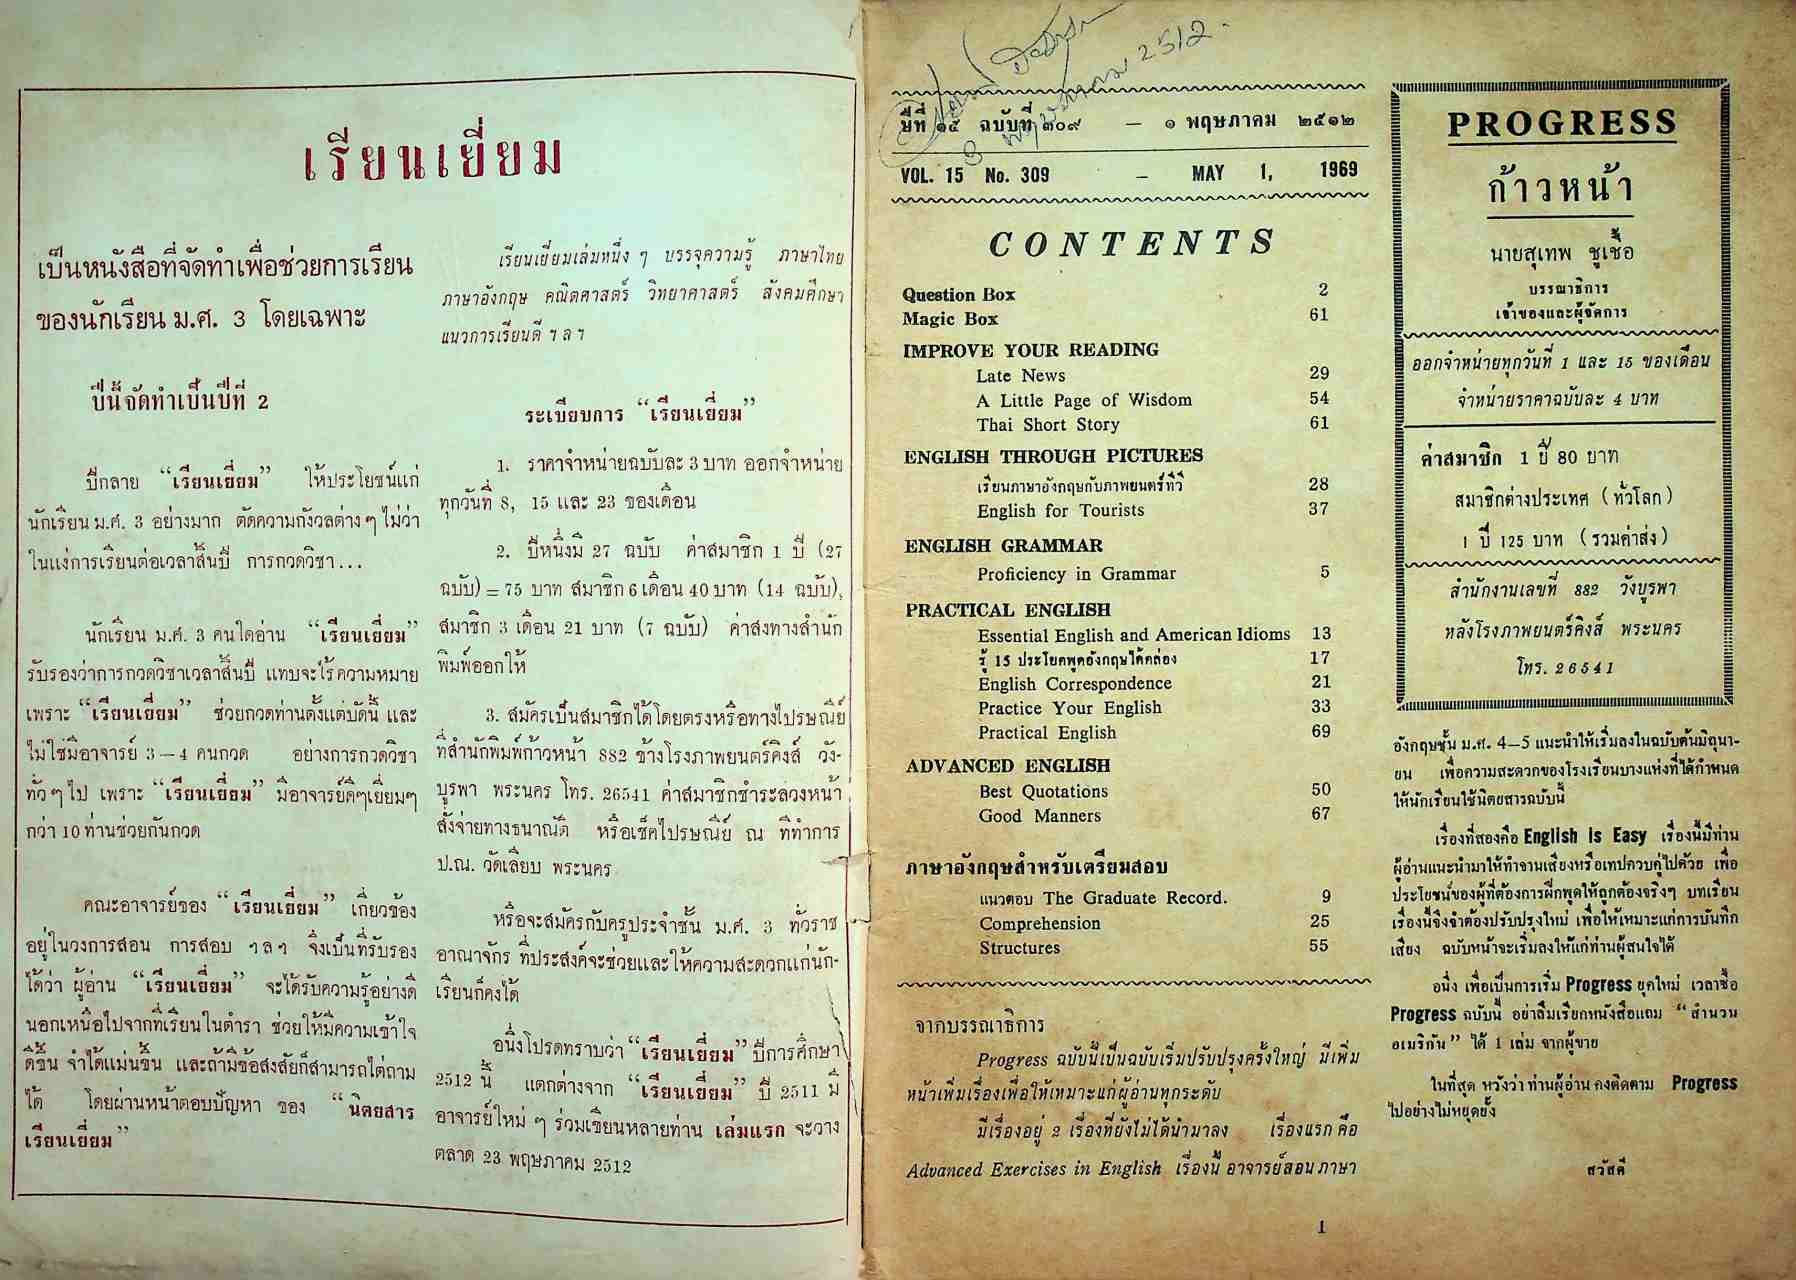 เรียนเยี่ยม
เป็นหนังสือที่จัดทำเพื่อช่วยการเรียน
ของนักเรียน ม.ศ. 3 โดยเฉพาะ
ปีนี้จัดทำเป็นปีที่ 2
ปีกลาย “เรียนเยี่ยม” ให้ประโยชน์แก่
นักเรียน ม.ศ. 3 อย่างมาก ตัดความกังวลต่าง ๆ ไม่ว่า
ในแง่การเรียนต่อเวลาสิ้นปี การกวดวิชา...
นักเรียน ม.ศ. 3 คนใดอ่าน “เรียนเยี่ยม”
รับรองว่าการกวดวิชาเวลาสิ้นปี แทบจะไร้ความหมาย
เพราะ “เรียนเยี่ยม” ช่วยกวดท่านตั้งแต่บัดนี้ และ
ไม่ใช่มีอาจารย์ 3—4 คนกวด อย่างการกวดวิชา
ทั่ว ๆ ไป เพราะ “เรียนเยี่ยม” มีอาจารย์ดีๆเยี่ยมๆ
กว่า 10 ท่านช่วยกันกวด
คณะอาจารย์ของ “เรียนเยี่ยม” เกี่ยวข้อง
อยู่ในวงการสอน การสอบ ฯลฯ จึงเป็นที่รับรอง
ได้ว่า ผู้อ่าน “เรียนเยี่ยม” จะได้รับความรู้อย่างดี
นอกเหนือไปจากที่เรียนในตำรา ช่วยให้มีความเข้าใจ
ดีขึ้น จำได้แม่นขึ้น และถ้ามีข้อสงสัยก็สามารถไต่ถาม
ได้ โดยผ่านหน้าตอบปัญหา ของ “นิตยสาร
เรียนเยี่ยม”
เรียนเยี่ยมเล่มหนึ่ง ๆ บรรจุความรู้ ภาษาไทย
ภาษาอังกฤษ คณิตศาสตร์ วิทยาศาสตร์ สังคมศึกษา
แนวการเรียนดี ฯลฯ
ระเบียบการ “เรียนเยี่ยม”
1. ราคาจำหน่ายฉบับละ 3 บาท ออกจำหน่าย
ทุกวันที่ 8, 15 และ 23 ของเดือน
2. ปีหนึ่งมี 27 ฉบับ ค่าสมาชิก 1 ปี (27
ฉบับ) = 75 บาท สมาชิก 6 เดือน 40 บาท (14 ฉบับ),
สมาชิก 3 เดือน 21 บาท (7 ฉบับ) ค่าส่งทางสำนัก
พิมพ์ออกให้
3. สมัครเป็นสมาชิกได้โดยตรงหรือทางไปรษณีย์
ที่สำนักพิมพ์ก้าวหน้า 882 ข้างโรงภาพยนตร์คิงส์ วัง-
บูรพา พระนคร โทร. 26541 ค่าสมาชิกชำระล่วงหน้า
สั่งจ่ายทางธนาณัติ หรือเช็คไปรษณีย์ ณ ที่ทำการ
ป.ณ. วัดเลียบ พระนคร
หรือจะสมัครกับครูประจำชั้น ม.ศ. 3 ทั่วราช
อาณาจักร ที่ประสงค์จะช่วยและให้ความสะดวกแก่นัก-
เรียนก็คงได้
อนึ่งโปรดทราบว่า “เรียนเยี่ยม” ปีการศึกษา
2512 นี้ แตกต่างจาก “เรียนเยี่ยม” ปี 2511 มี
อาจารย์ใหม่ ๆ ร่วมเขียนหลายท่าน เล่มแรก จะวาง
ตลาด 23 พฤษภาคม 2512
3 พฤษภาคม 2512.
ปีที่ ๑๕ ฉบับที่ ๓๐๙ — ๑ พฤษภาคม ๒๕๑๒
VOL. 15 No. 309 — MAY 1, 1969
CONTENTS
Question Box 2
Magic Box 61
IMPROVE YOUR READING
Late News 29
A Little Page of Wisdom 54
Thai Short Story 61
ENGLISH THROUGH PICTURES
เรียนภาษาอังกฤษกับภาพยนตร์ทีวี 28
English for Tourists 37
ENGLISH GRAMMAR
Proficiency in Grammar 5
PRACTICAL ENGLISH
Essential English and American Idioms 13
รู้ 15 ประโยคพูดอังกฤษได้คล่อง 17
English Correspondence 21
Practice Your English 33
Practical English 69
ADVANCED ENGLISH
Best Quotations 50
Good Manners 67
ภาษาอังกฤษสำหรับเตรียมสอบ
แนวตอบ The Graduate Record. 9
Comprehension 25
Structures 55
จากบรรณาธิการ
Progress ฉบับนี้เป็นฉบับเริ่มปรับปรุงครั้งใหญ่ มีเพิ่ม
หน้าเพิ่มเรื่องเพื่อให้เหมาะแก่ผู้อ่านทุกระดับ
มีเรื่องอยู่ 2 เรื่องที่ยังไม่ได้นำมาลง เรื่องแรก คือ
Advanced Exercises in English เรื่องนี้ อาจารย์สอนภาษา
PROGRESS
ก้าวหน้า
นายสุเทพ ชูเชื้อ
บรรณาธิการ
เจ้าของและผู้จัดการ
ออกจำหน่ายทุกวันที่ 1 และ 15 ของเดือน
จำหน่ายราคาฉบับละ 4 บาท
ค่าสมาชิก 1 ปี 80 บาท
สมาชิกต่างประเทศ (ทั่วโลก)
1 ปี 125 บาท (รวมค่าส่ง)
สำนักงานเลขที่ 882 วังบูรพา
หลังโรงภาพยนตร์คิงส์ พระนคร
โทร. 26541
อังกฤษชั้น ม.ศ. 4—5 แนะนำให้เริ่มลงในฉบับต้นมิถุนา-
ยน เพื่อความสะดวกของโรงเรียนบางแห่งที่ได้กำหนด
ให้นักเรียนใช้นิตยสารฉบับนี้
เรื่องที่สองคือ English is Easy เรื่องนี้มีท่าน
ผู้อ่านแนะนำมาให้ทำจานเสียงหรือเทปควบคู่ไปด้วย เพื่อ
ประโยชน์ของผู้ที่ต้องการฝึกพูดให้ถูกต้องจริงๆ บทเรียน
เรื่องนี้จึงจำต้องปรับปรุงใหม่ เพื่อให้เหมาะแก่การบันทึก
เสียง ฉบับหน้าจะเริ่มลงให้แก่ท่านผู้สนใจได้
อนึ่ง เพื่อเป็นการเริ่ม Progress ยุคใหม่ เวลาซื้อ
Progress ฉบับนี้ อย่าลืมเรียกหนังสือแถม “สำนวน
อเมริกัน” ได้ 1 เล่ม จากผู้ขาย
ในที่สุด หวังว่า ท่านผู้อ่าน คงติดตาม Progress
ไปอย่างไม่หยุดยั้ง
สวัสดี
1